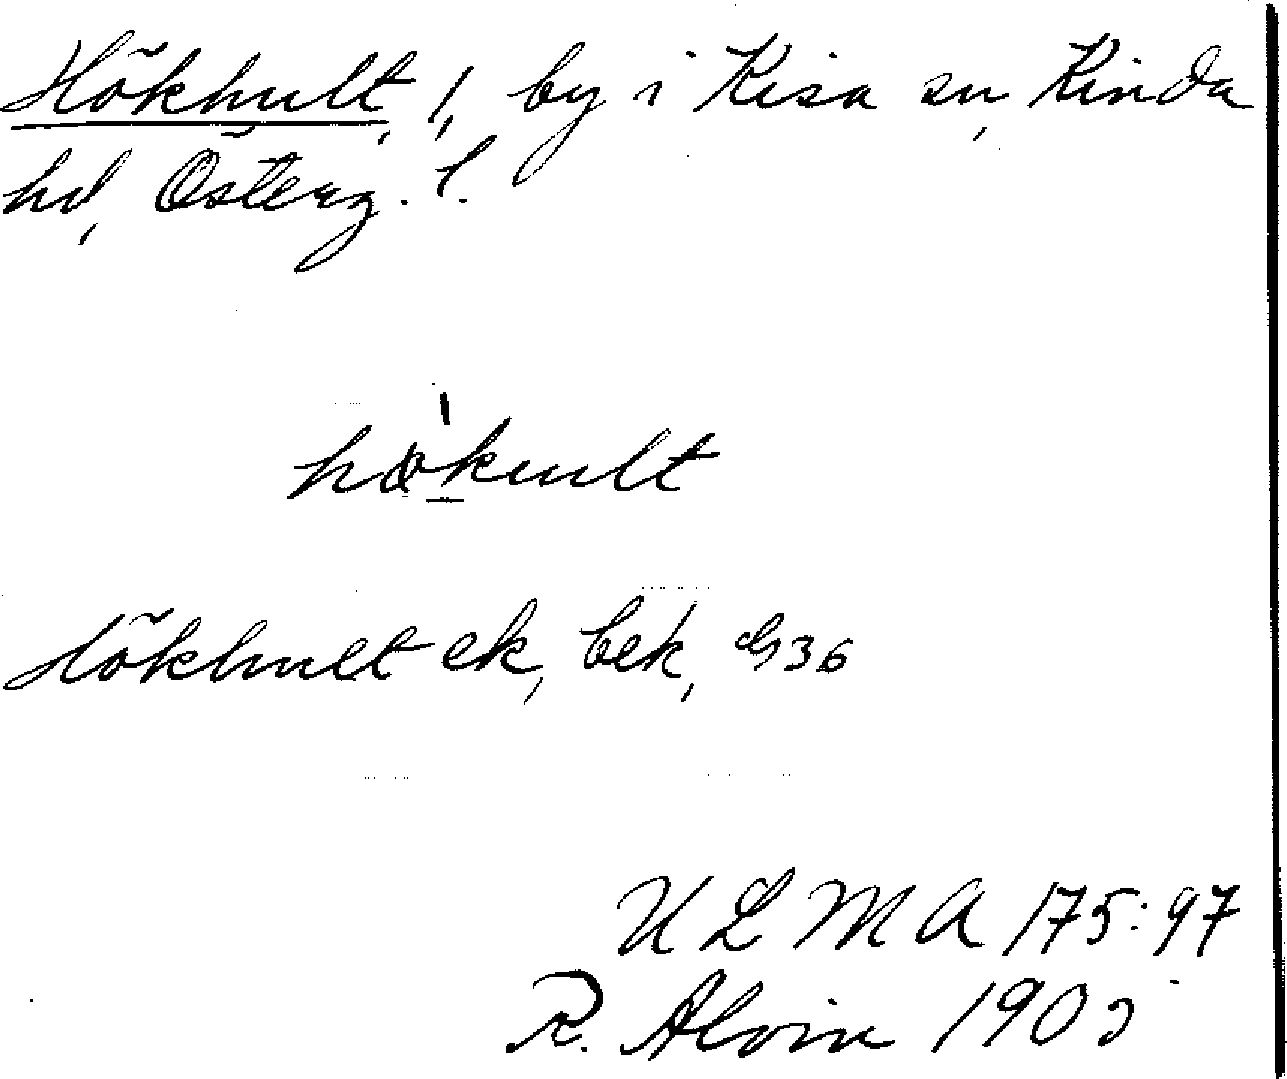 Hökhult, 1, by i Kisa sn, Kinda
hd, Österg. l.
hökult
Hökhult ek, bek, GS 36
ULMA 175:97
R. Alvin 1905